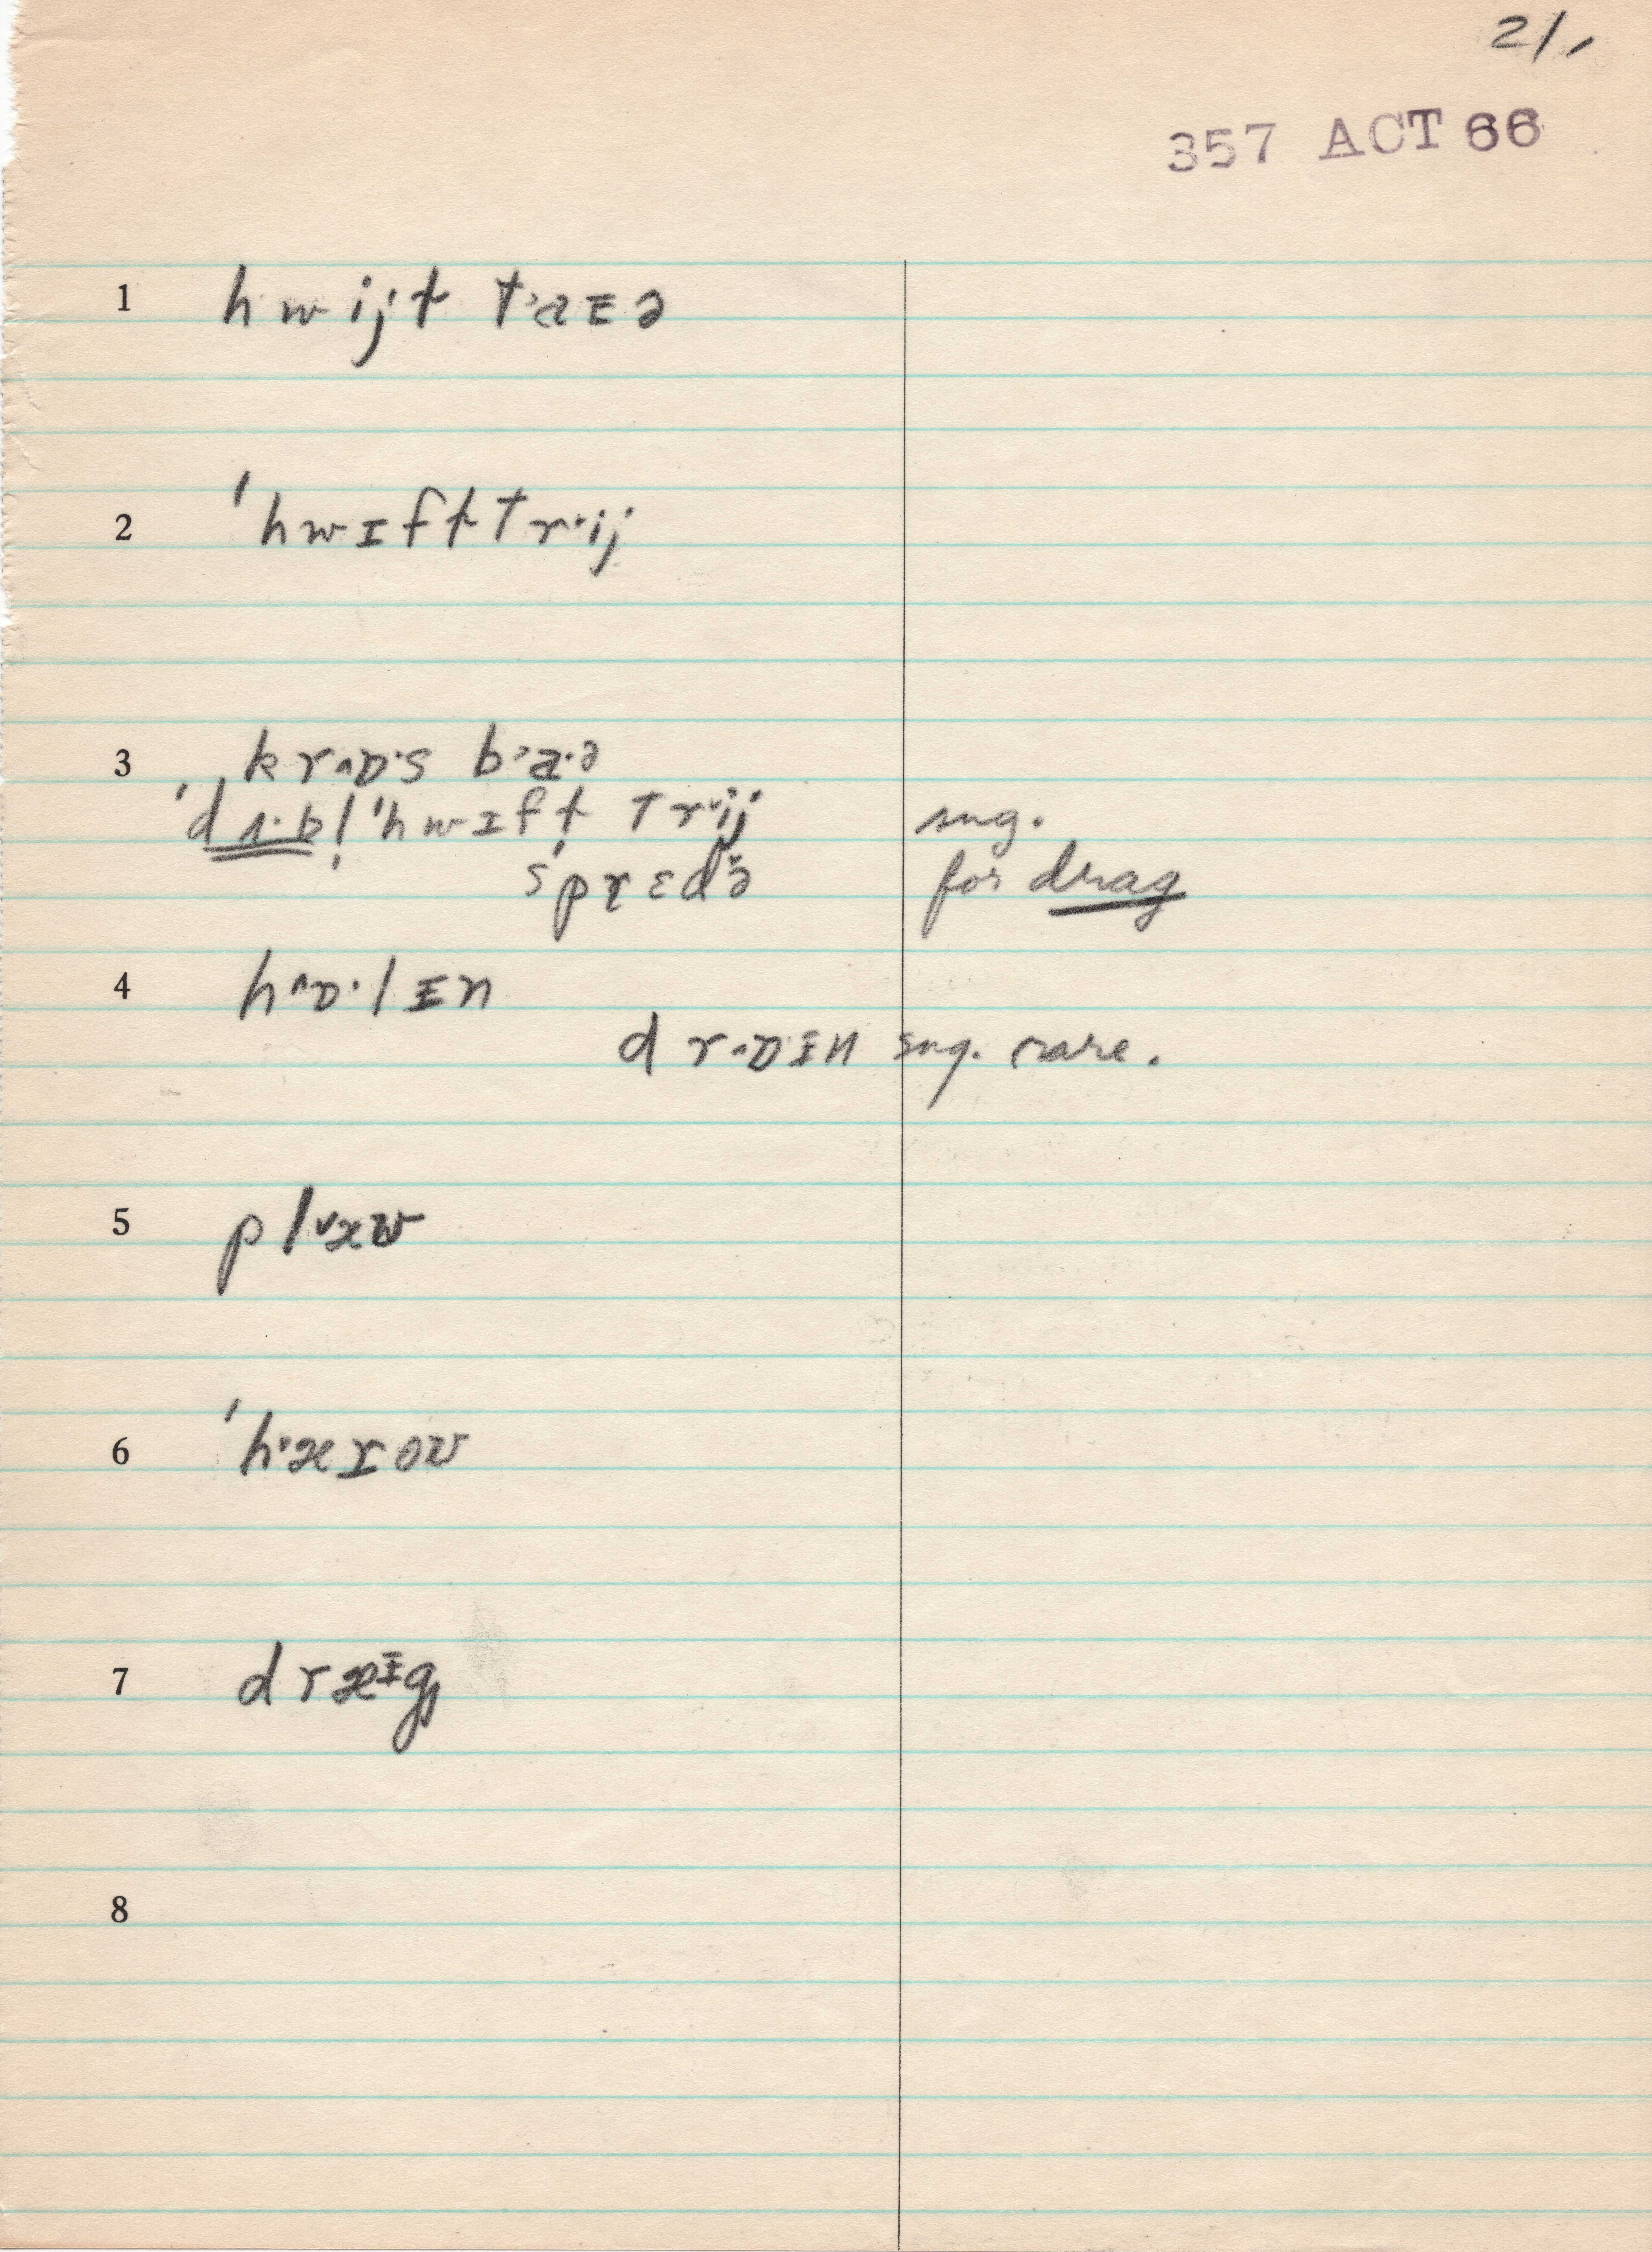 21,
357 ACT 66
1 hwijt t˒aᵻə
2 ˈhwɪft tr˕ij
3 kr^ɒ·s b˒a·ə
ˈdʌ·b! ˈhwɪft tr˕ij sug.
ˈsprɛdᵊə for drag
4 h^ɒ·lᵻn
dr^ɒᵻn sug. rare.
5 pl˅æʊ
6 ˈh˅æɪoʊ
7 dræᵻg
8